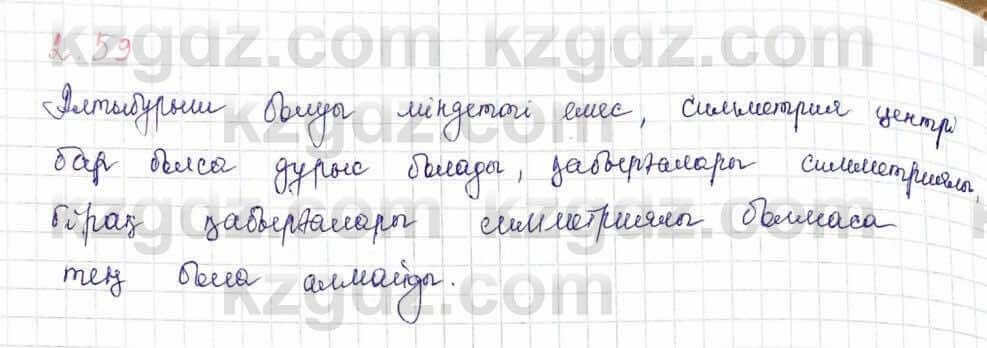 2.59
Алтыбұрыш болуы міндетті емес, симметрия центрі
бар болса дұрыс болады, қабырғалары симметриялы,
бірақ қабырғалары симметриялы болмаса
тең бола алмайды.
kzgdz.com